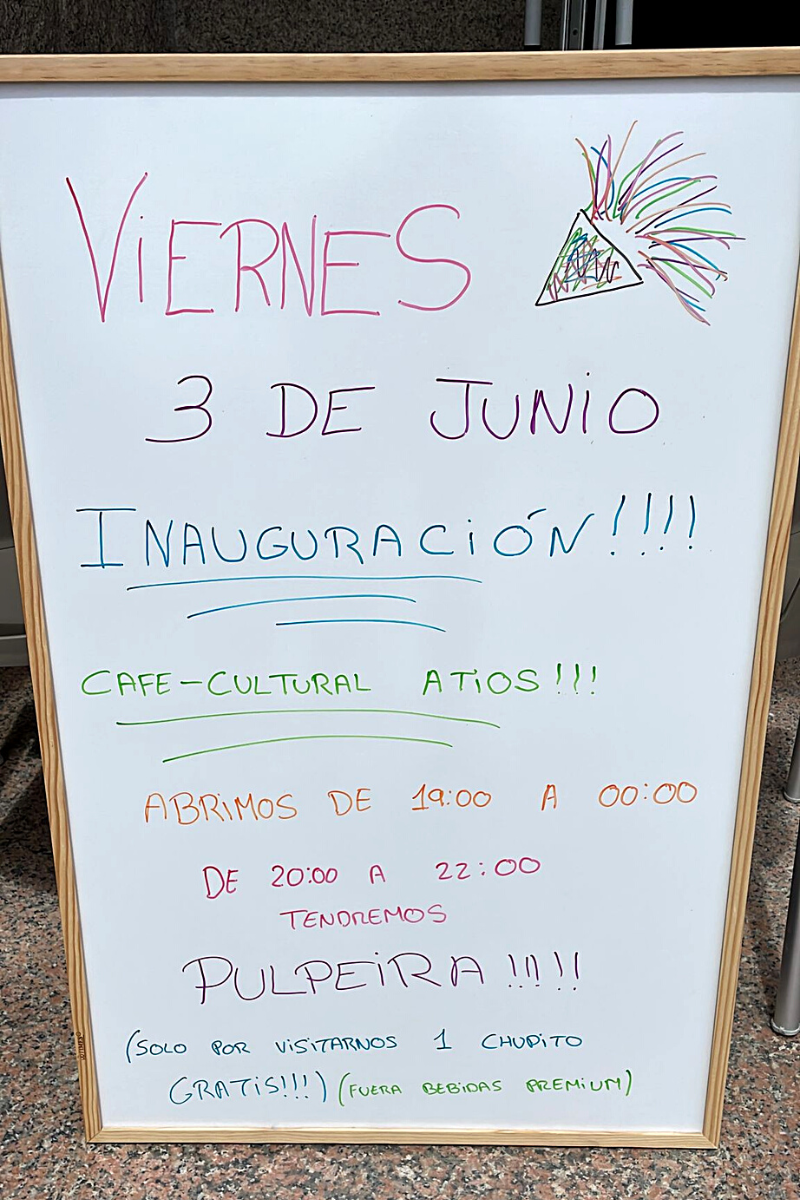 VIERNES
3 DE JUNIO
INAUGURACIÓN!!!!
CAFE-CULTURAL ATIOS!!!
ABRIMOS DE 19:00 A 00:00
DE 20:00 A 22:00
TENDREMOS
PULPEIRA!!!!!
(SOLO POR VISITARNOS 1 CHUPITO
GRATIS!!!) (FUERA BEBIDAS PREMIUM)